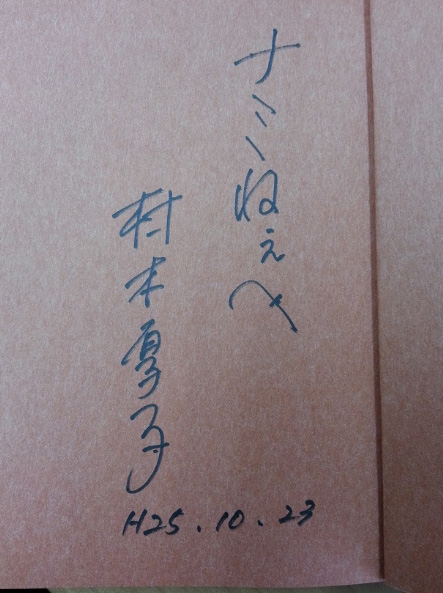 ナミねぇへ
村木厚子
H25.10.23